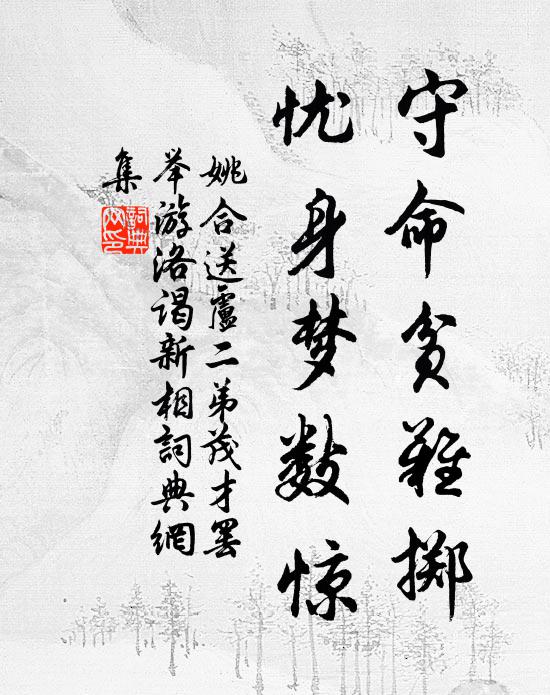 守命贫难掷
忧身梦数惊
姚合送盧二弟茂才罢
举游洛谒新相詞典網
集
詞典
网印